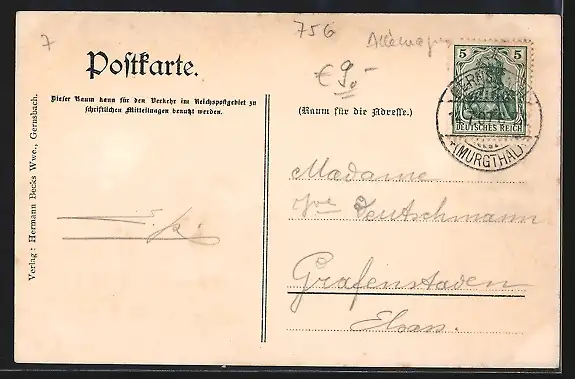 7
756
Allemagne
Postkarte.
€ 9,-
5 5
DEUTSCHES REICH
GERNSB
* (MURGTHAL) *
Dieser Raum kann für den Verkehr im Reichspostgebiet zu
schriftlichen Mitteilungen benutzt werden.
(Raum für die Adresse.)
Verlag: Hermann Becks Wwe., Gernsbach.
Madame
Deutschmann
Grafenstaden
Elsass.